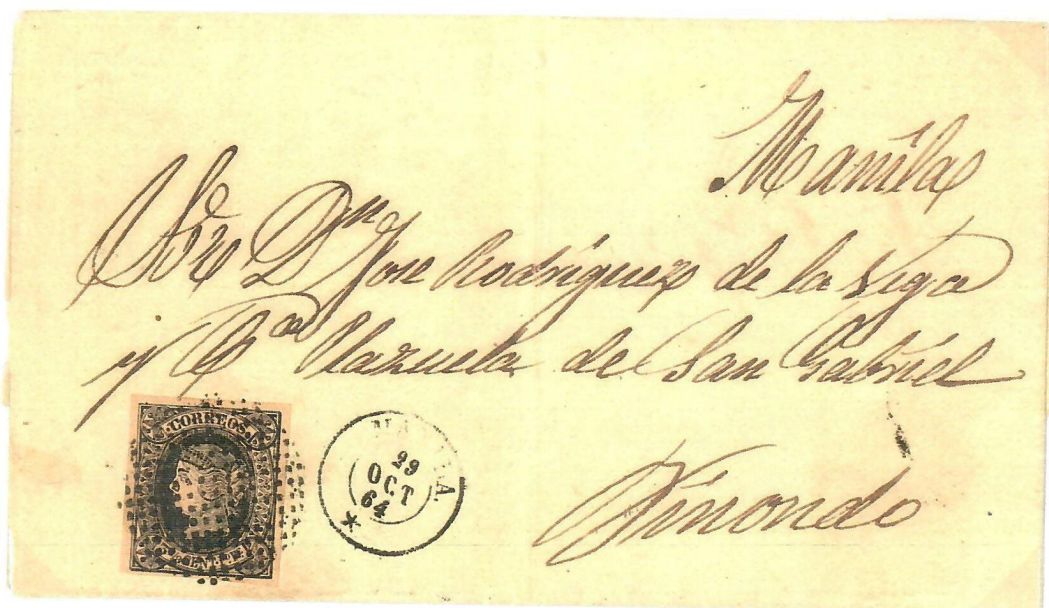 Manila
Sor Dn Jose Rodriguez de la Vega
y Ca Plazuela de San Gabriel
Vinondo
CORREOS
MANILA
29
OCT
64